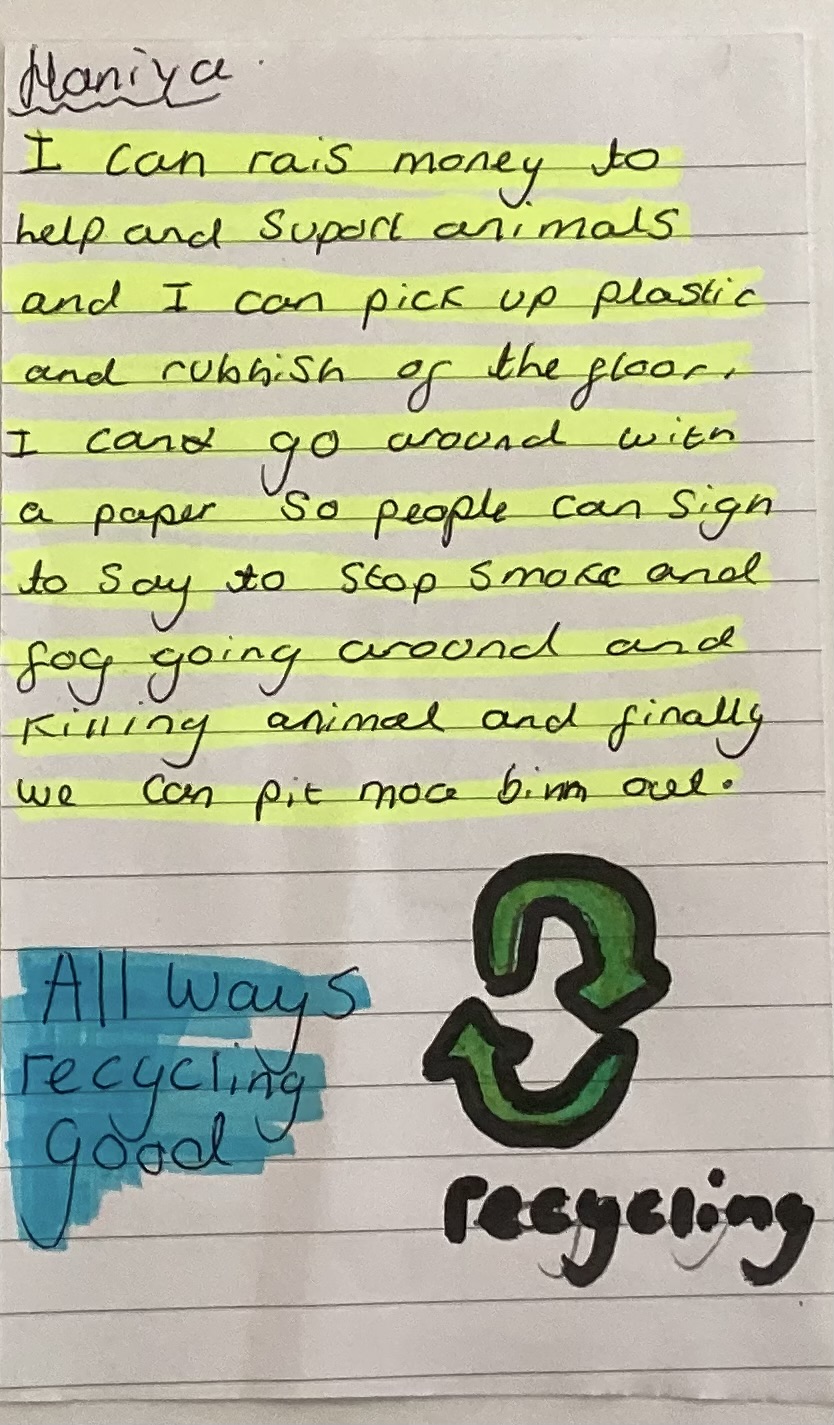 Haniya
I can rais money to
help and suport animals
and I can pick up plastic
and rubbish of the floor.
I cand go around with
a paper so people can sign
to say to stop smoke and
fog going around and
killing animal and finally
we can pit more binn out.
All ways
recycling
good
recycling